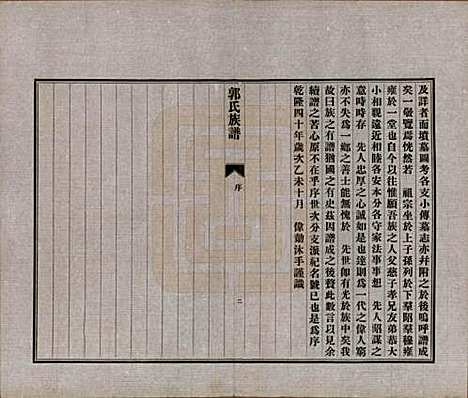 及詳者而墳墓圖考各支小傳墓志亦并附之於後嗚呼譜成
矣一爾寬疇恍然若　祖宗坐於上子孫列於下羣昭羣穆雍
雍於一堂也自今以往惟願吾族之人父慈子孝兄友弟恭大
小相親遠近相睦各安本分各守家法事事想　先人昭謀之
意時時存　先人忠厚之心誠如是也達則爲一代之偉人窮
亦不失爲一鄉之善士能無愧於　先世卽有光於族中矣我
故曰族之有譜猶國之有史茲因譜成之後贅此數言以見余
續譜之苦心原不在乎序世次分支派紀名號已也是爲序
乾隆四十年歲次乙未十月　偉勳沐手謹識
郭氏族譜
序
二